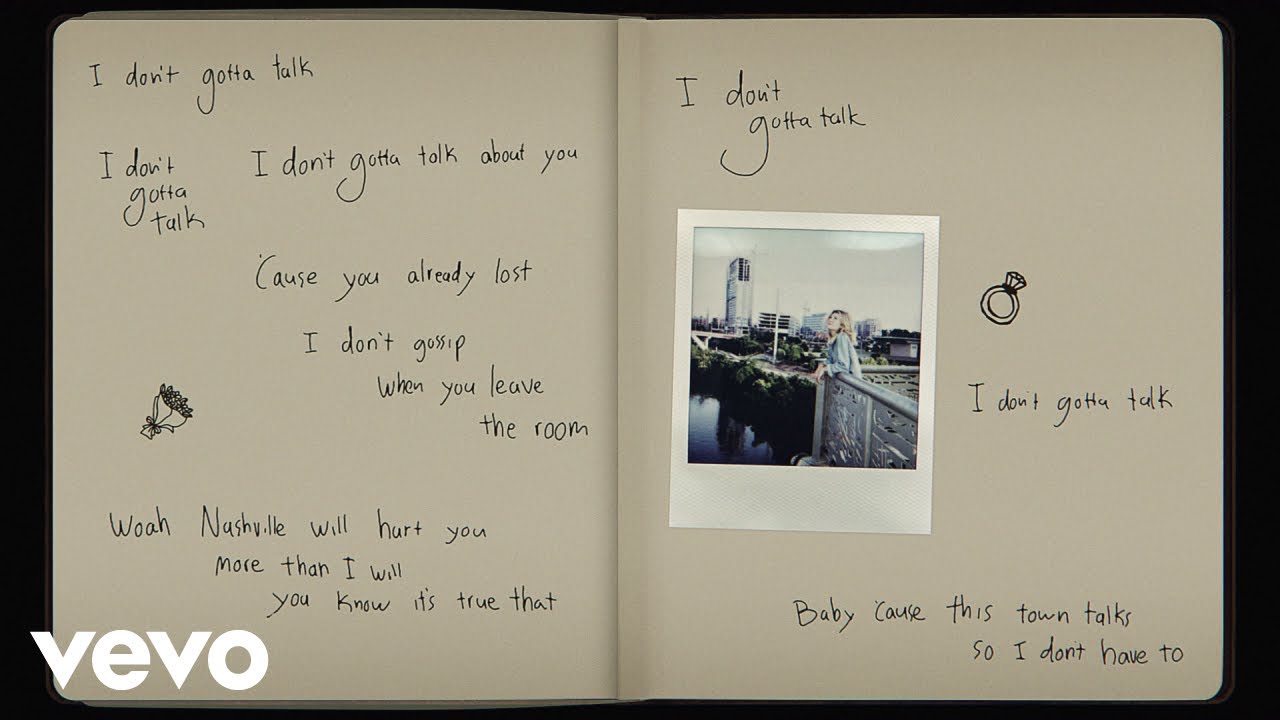 I don't gotta talk
I don't
gotta
talk
I don't gotta talk about you
'Cause you already lost
I don't gossip
when you leave
the room
Woah Nashville will hurt you
more than I will
you know it's true that
vevo
I don't
gotta talk
I don't gotta talk
Baby 'cause this town talks
so I don't have to